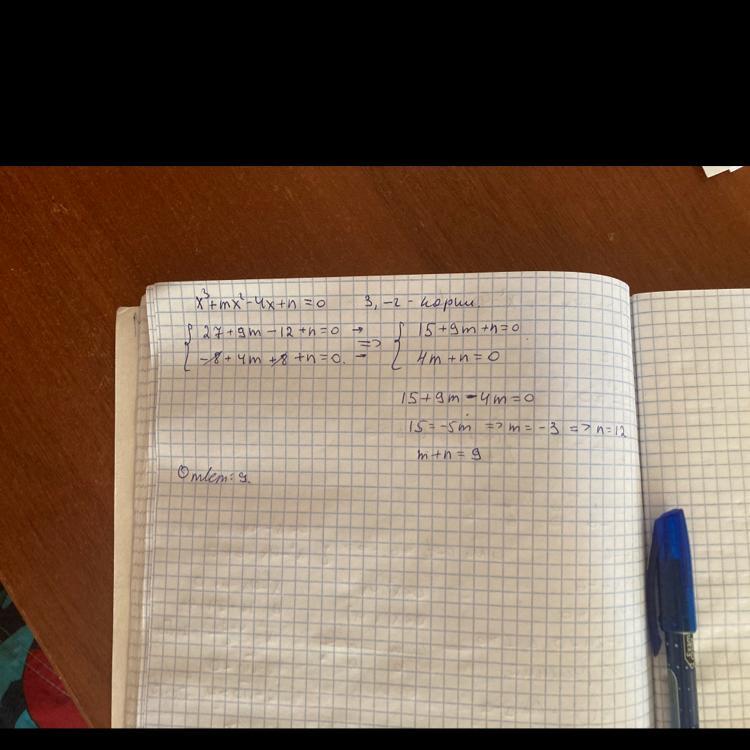 x³+mx²-4x+n=0 3, -2 - корни.
{ 27+9m-12+n=0 => { 15+9m+n=0
-8+4m+8+n=0. 4m+n=0
15+9m-4m=0
15=-5m => m=-3 => n=12
m+n=9
Ответ: 9.